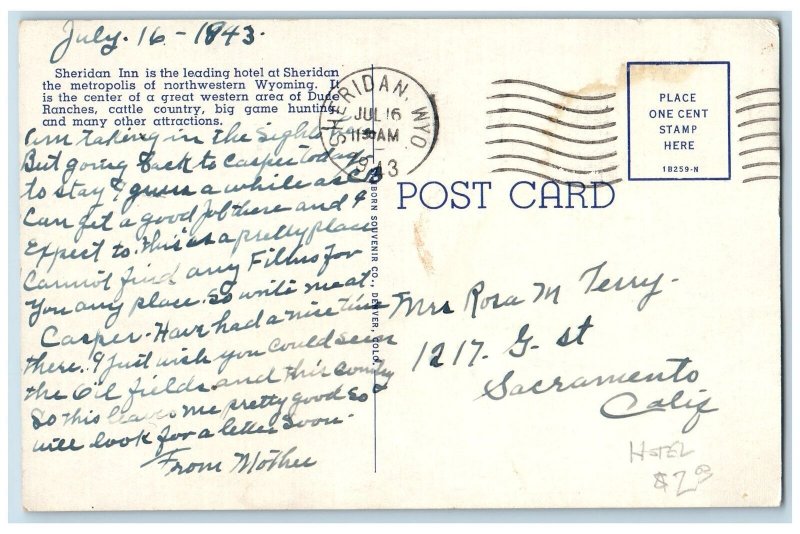 July. 16 - 1843.
Sheridan Inn is the leading hotel at Sheridan
the metropolis of northwestern Wyoming. It
is the center of a great western area of Dude
Ranches, cattle country, big game hunting
and many other attractions.
am taking in the Sights
But going back to casper today
to stay I guess a while as
Can get a good job there and I
Expect to. this is a pretty place
Cannot find any Films for
You any place. So write me at
Casper. Have had a nice time
there. I Just wish you could seen
the Oil fields. and this country
So this leaves me pretty good So
will look for a letter Soon.
From Mother
SHERIDAN, WYO.
JUL 16
1130 AM
1943
PLACE
ONE CENT
STAMP
HERE
1B259-N
POST CARD
BORN SOUVENIR CO., DENVER, COLO.
Mrs Rosa M Terry.
1217. G. st
Sacramento
Calif
HOTEL
$2.00